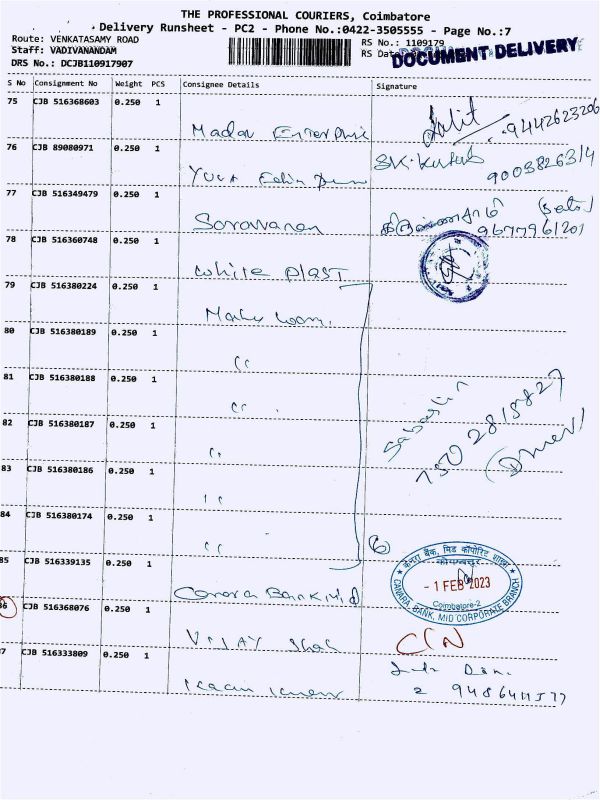 THE PROFESSIONAL COURIERS, Coimbatore
Delivery Runsheet - PC2 - Phone No.:0422-3505555 - Page No.:7
Route: VENKATASAMY ROAD
RS No.: 1109179
Staff: VADIVANANDAM
RS Date
DOCUMENT DELIVERY
DRS No.: DCJB110917907
S No Consignment No Weight PCS Consignee Details Signature
75 CJB 516368603 0.250 1
9442623206
76 CJB 89080971 0.250 1
9003826314
77 CJB 516349479 0.250 1 Saravanan
9677961201
78 CJB 516360748 0.250 1 White Plast
79 CJB 516380224 0.250 1
80 CJB 516380189 0.250 1 "
81 CJB 516380188 0.250 1 "
82 CJB 516380187 0.250 1 "
83 CJB 516380186 0.250 1 "
84 CJB 516380174 0.250 1 "
750 2815827
(Driver)
6
85 CJB 516339135 0.250 1 Canara Bank Mid
केनरा बैंक, मिड कॉर्पोरेट शाखा
कोयम्बत्तूर
- 1 FEB 2023
Coimbatore-2
CANARA, BANK, MID CORPORATE BRANCH
86 CJB 516368076 0.250 1 Vijay Shah
C/N
87 CJB 516333809 0.250 1